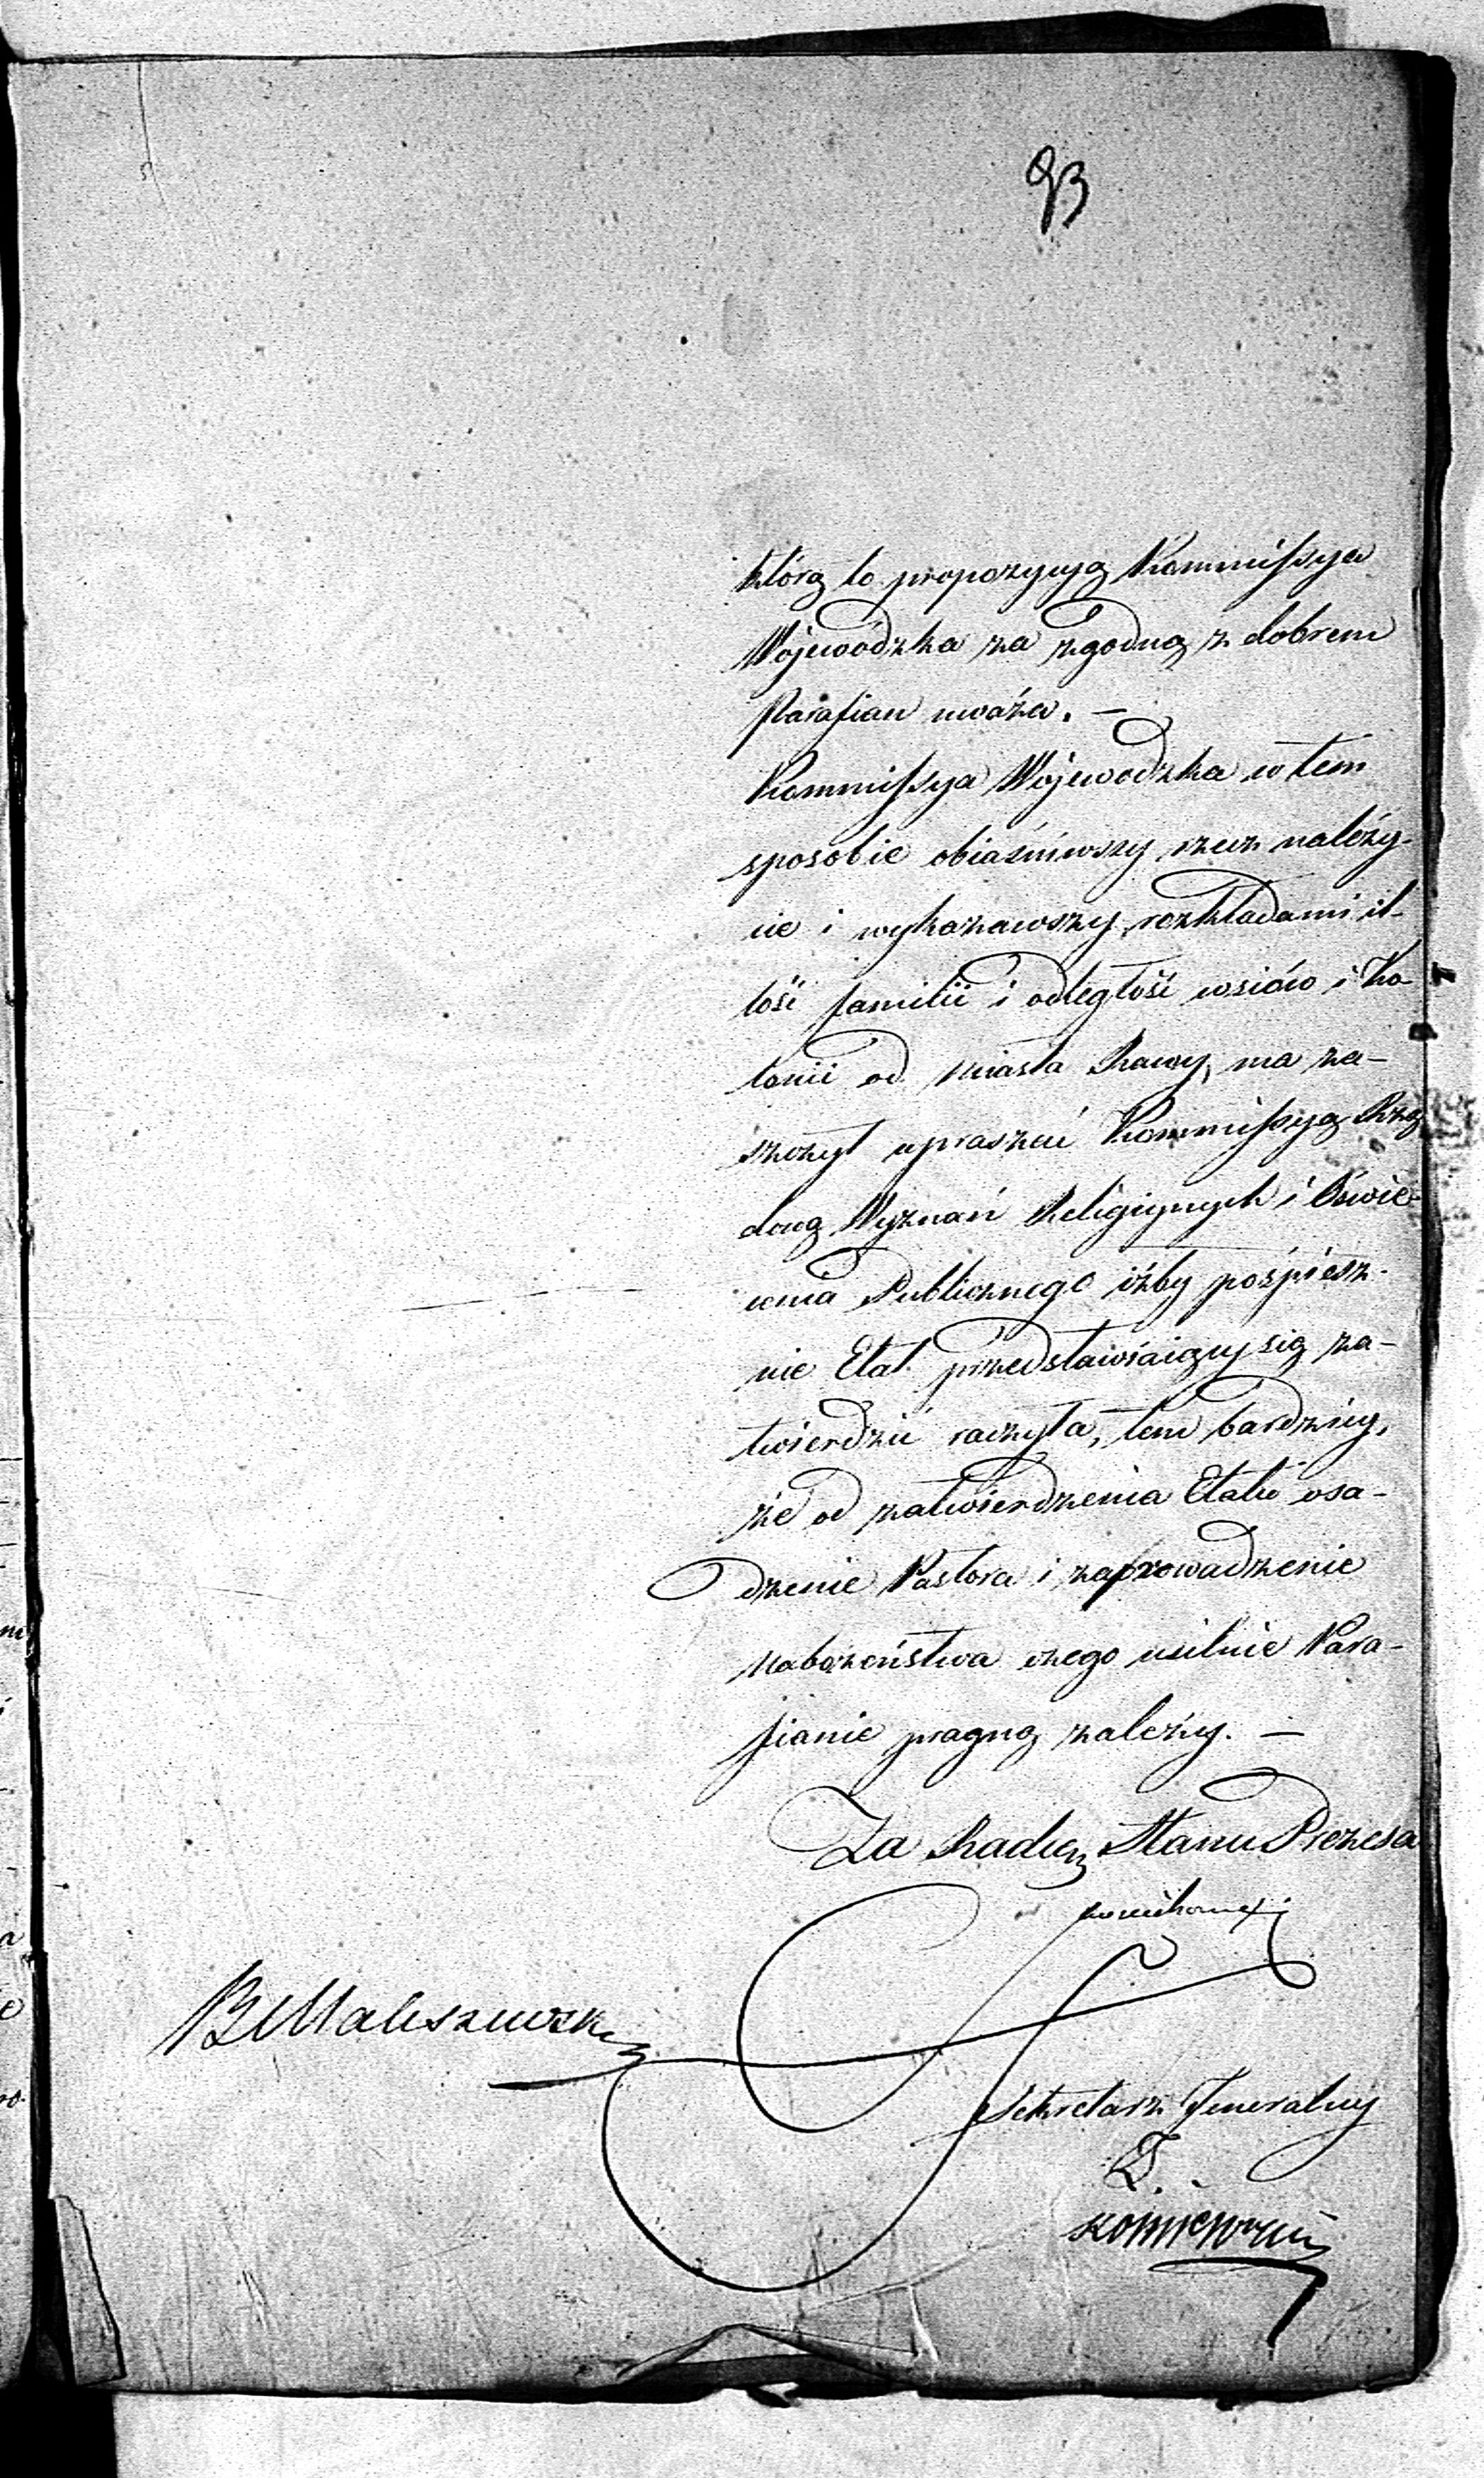 93
którą to propozycyą Kommissya
Wojewódzka za zgodną z dobrem
Parafian uważa. —
Kommissya Wojewodzka w tem
sposobie obiaśniwszy rzecz należy-
cie i wykazawszy rozkładami il-
łość familii i odległość wsiów i Ko-
lonii od miasta Rawy, ma za-
szczyt upraszać Kommissyą Rzą
dową Wyznań Religiynych i Oświe-
cenia Publicznego iżby pośpiesz-
nie Etat przedstawiaiący się za-
twierdzić raczyła, tem bardziey,
że od zatwierdzenia Etatu osa-
dzenie Pastora i zaprowadzenie
nabożeństwa czego usilnie Para-
fianie pragną zależy. —
Za Radcę Stanu Prezesa
Sekretarz Jeneralny